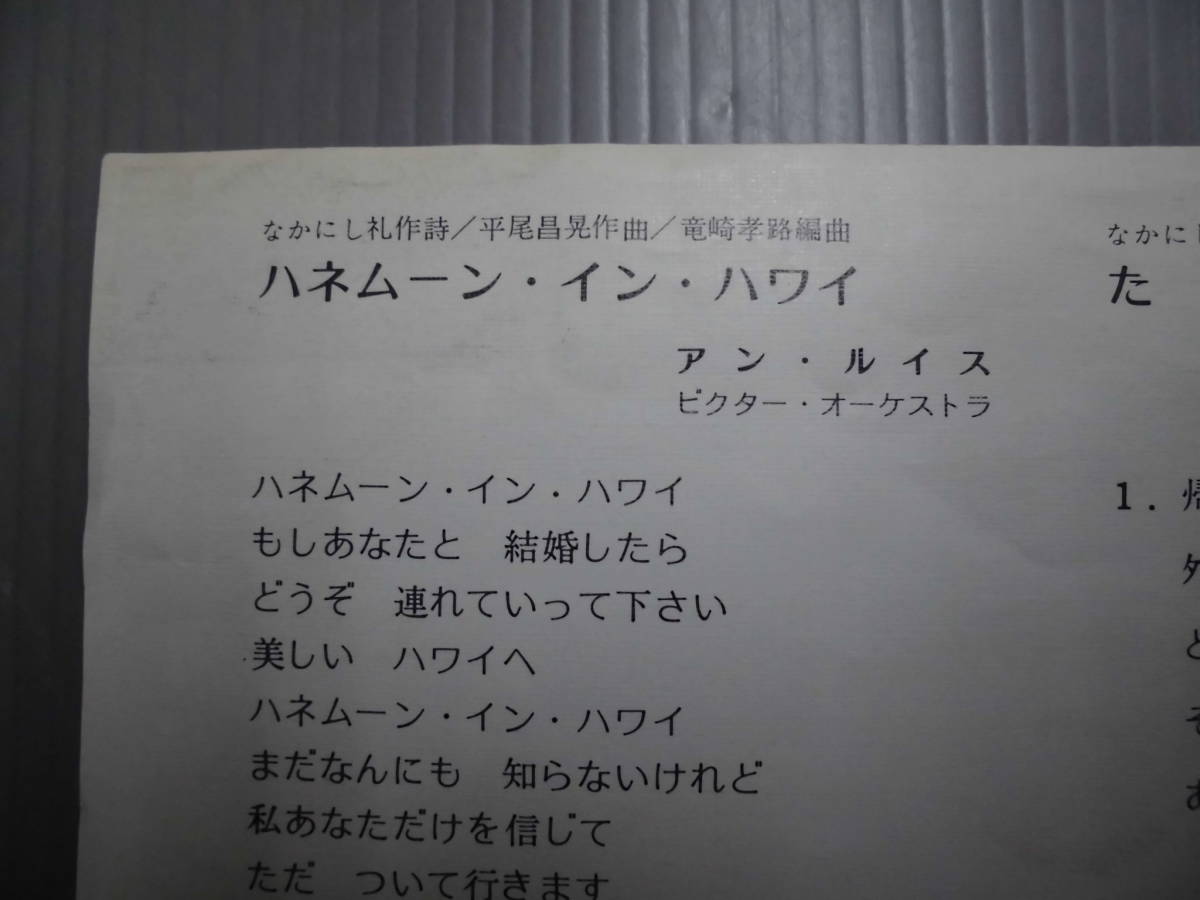 なかにし礼作詩／平尾昌晃作曲／竜崎孝路編曲
ハネムーン・イン・ハワイ
アン・ルイス
ビクター・オーケストラ
ハネムーン・イン・ハワイ
もしあなたと 結婚したら
どうぞ 連れていって下さい
美しい ハワイへ
ハネムーン・イン・ハワイ
まだなんにも 知らないけれど
私あなただけを信じて
ただ ついて行きます
なかにし
た
1. 帰
外
と
そ
あ